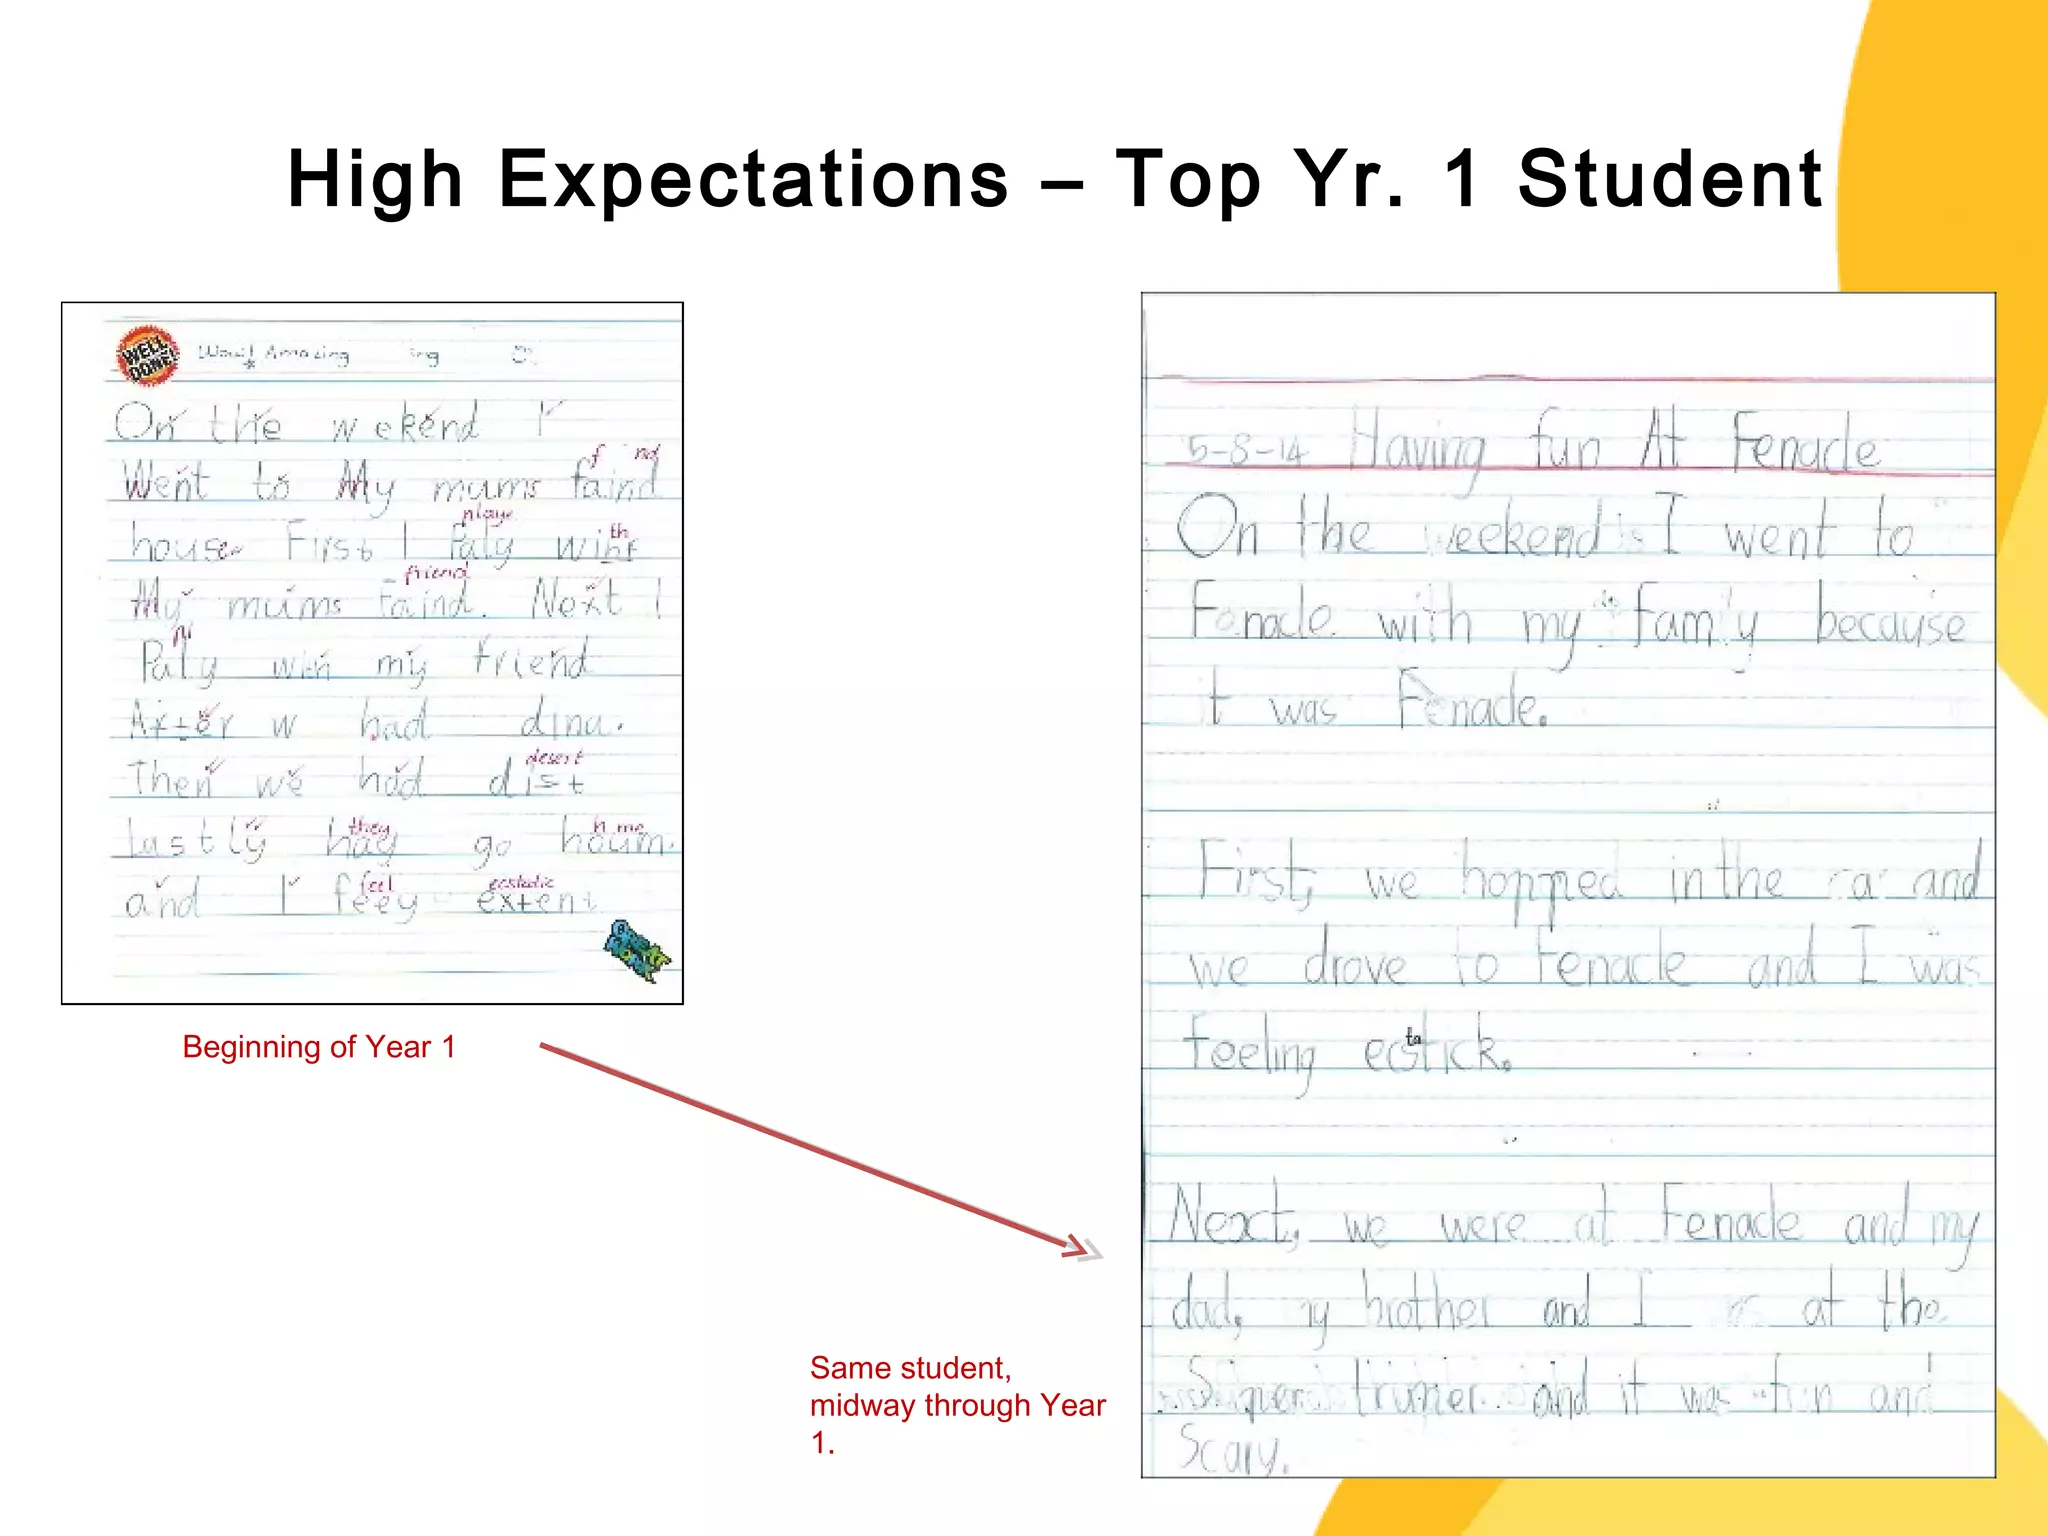 High Expectations – Top Yr. 1 Student
WELL DONE!
Wow! Amazing
On the weekend I
f nd
Went to My mums faind
playe
th
house. First I Paly witht
friend
My mums faind. Next I
Paly with my friend
After w had dina.
desert
Then we had dist
they
h me
lastly hay go houm.
feel
ecstatic
and I feey extent
Beginning of Year 1
Same student,
midway through Year
1.
5-8-14 Having fun At Fenacle
On the weekend I went to
Fenacle with my family because
it was Fenacle.
First, we hopped in the car and
we drove to Fenacle and I was
ta
feeling ecstick.
Next, we were at Fenacle and my
dad, my brother and I at the
and it was fun and
Scary.